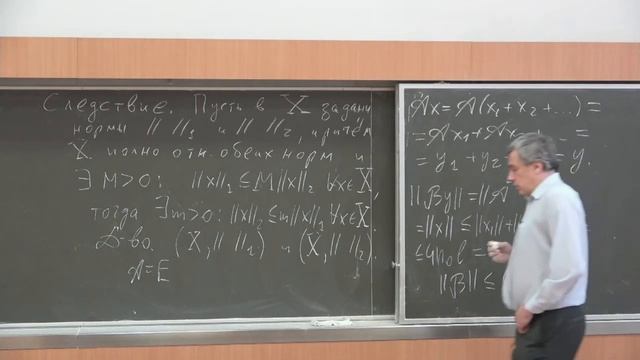 Следствие. Пусть в X заданы
нормы || ||₁ и || ||₂, причём
X полно отн. обеих норм и
∃ M>0: ||x||₁ ≤ M||x||₂ ∀x∈X,
тогда ∃ m>0: ||x||₂ ≤ m||x||₁ ∀x∈X.
Д-во. (X, || ||₁) и (X, || ||₂).
A=E
Ax = A(x₁+x₂+...) =
= Ax₁+Ax₂ ... =
= y₁+y₂ = y.
||By|| = ||A
= ||x|| ≤ ||x₁||+||
≤ 4n₀l =
||B|| ≤